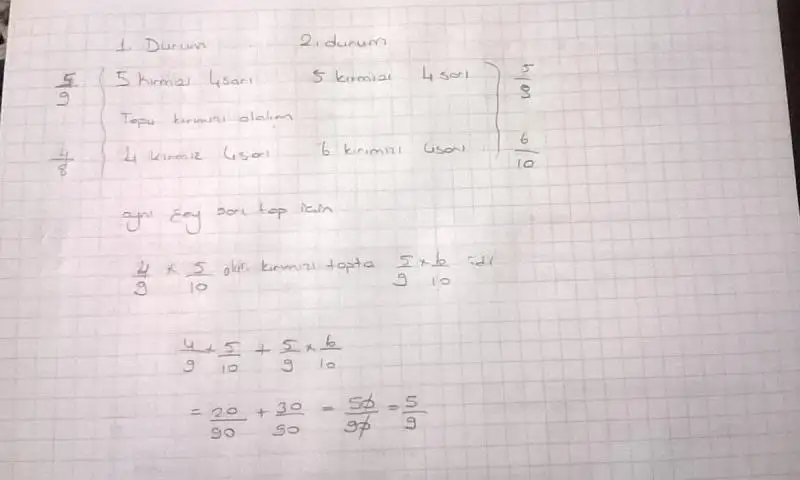 1. Durum 2. durum
5/9 5 kırmızı 4 sarı 5 kırmızı 4 sarı 5/9
Topu kırmızı alalım
4/8 4 kırmız 4 sarı 6 kırımızı 4 sarı 6/10
aynı şey sarı top için
4/9 × 5/10 olur. kırmızı topta 5/9 × 6/10 idi
4/9 × 5/10 + 5/9 × 6/10
= 20/90 + 30/90 = 50/90 = 5/9